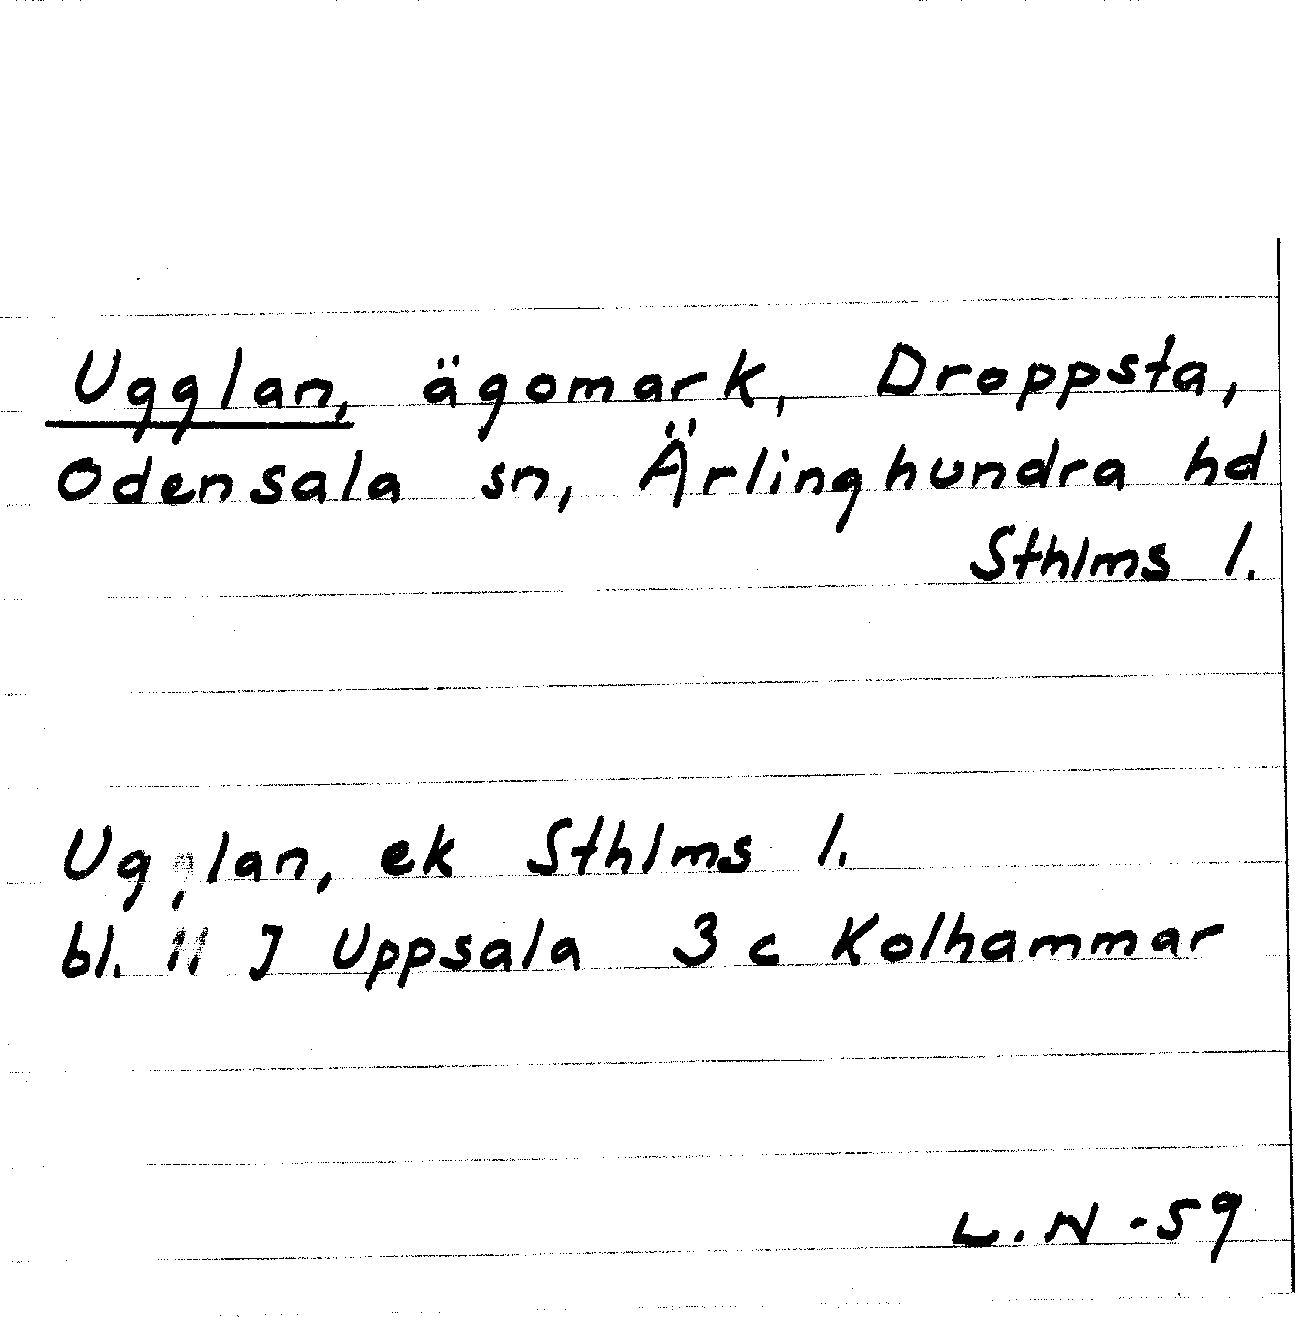 Ugglan, ägomark, Droppsta,
Odensala sn, Ärlinghundra hd
Sthlms l.
Ugglan, ek Sthlms l.
bl. 11 J Uppsala 3 c Kolhammar
L.N -59